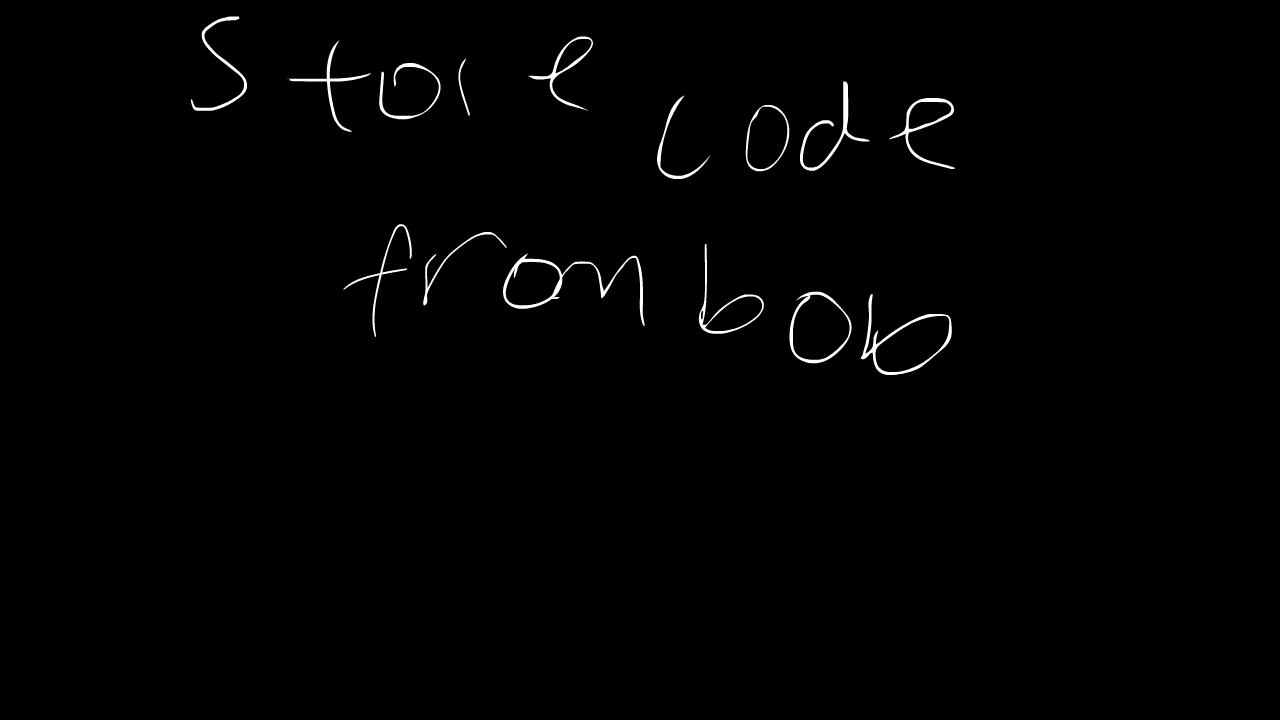 Store code
from bob